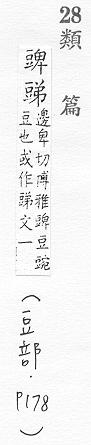 28類篇
豍
邊卑切博雅豍豆豌
豆也或作文一
(豆部.P178)